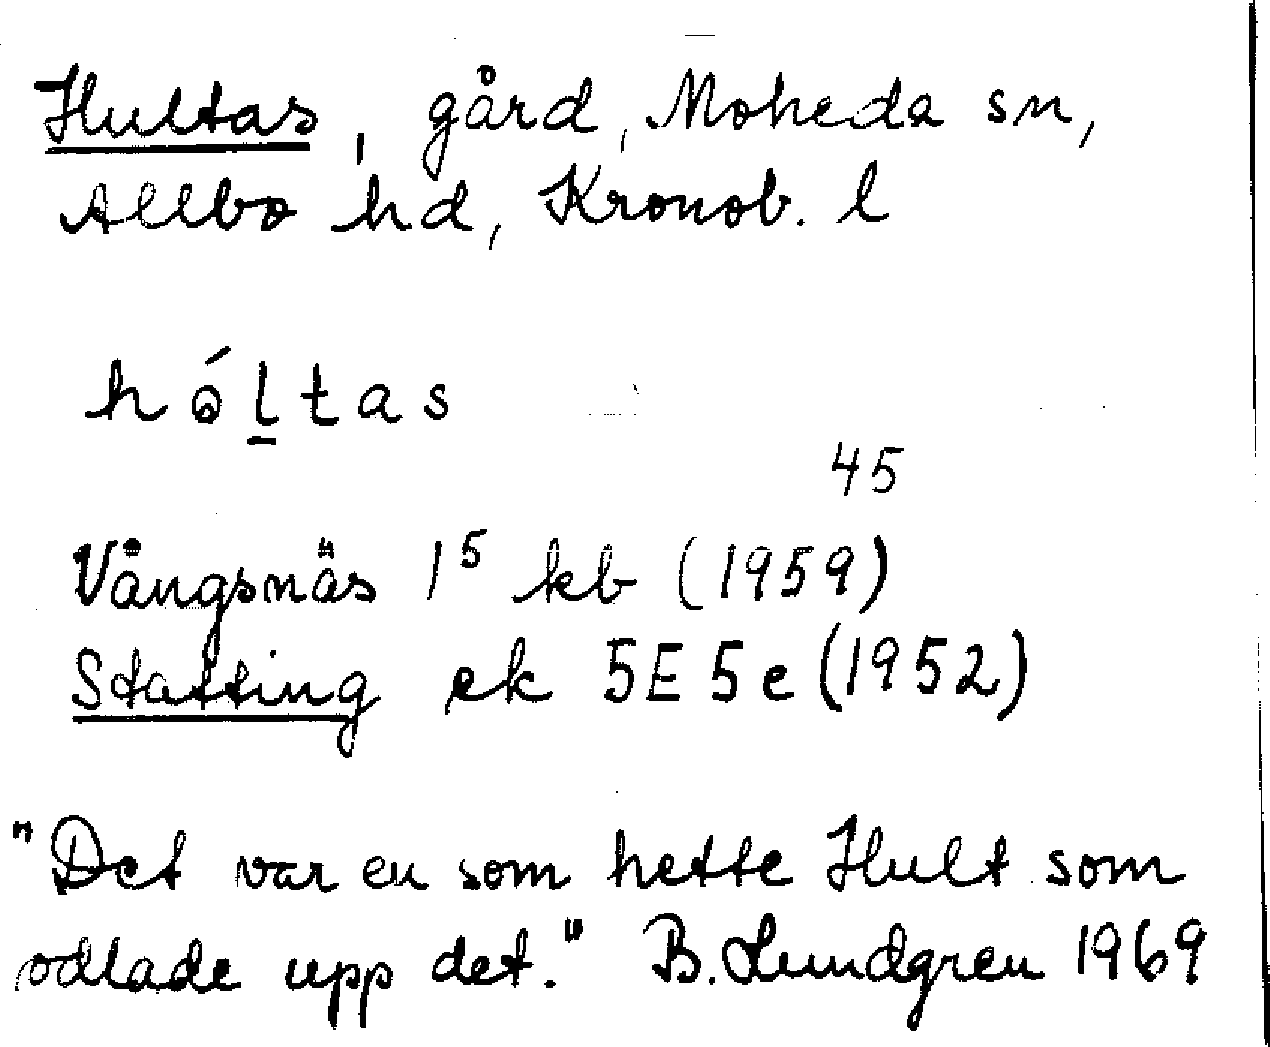 Hultas, gård, Moheda sn,
Allbo hd, Kronob. l
hóltas
45
Vångsnäs 1⁵ kb (1959)
Statting ek 5E5e (1952)
"Det var en som hette Hult som
odlade upp det." B. Lundgren 1969